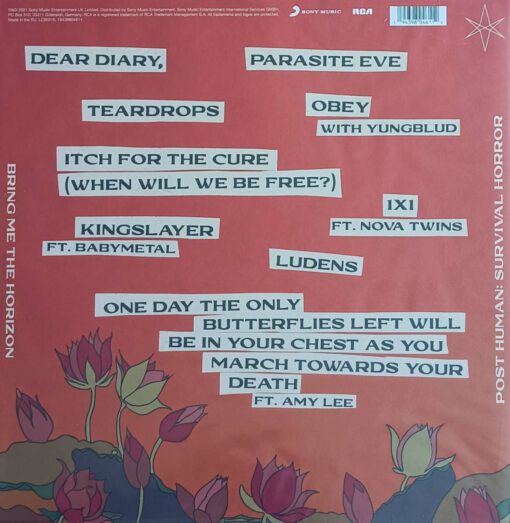 ℗&© 2021 Sony Music Entertainment UK Limited. Distributed by Sony Music Entertainment. Sony Music Entertainment International Services GmbH,
PO Box 510, 33311 Gütersloh, Germany. RCA is a registered trademark of RCA Trademark Management S.A. All trademarks and logos are protected.
Made in the EU. 19439804611
SONY MUSIC
RCA
DEAR DIARY,
PARASITE EVE
TEARDROPS
OBEY
WITH YUNGBLUD
ITCH FOR THE CURE
(WHEN WILL WE BE FREE?)
IXI
FT. NOVA TWINS
KINGSLAYER
FT. BABYMETAL
LUDENS
ONE DAY THE ONLY
BUTTERFLIES LEFT WILL
BE IN YOUR CHEST AS YOU
MARCH TOWARDS YOUR
DEATH
FT. AMY LEE
BRING ME THE HORIZON
POST HUMAN: SURVIVAL HORROR